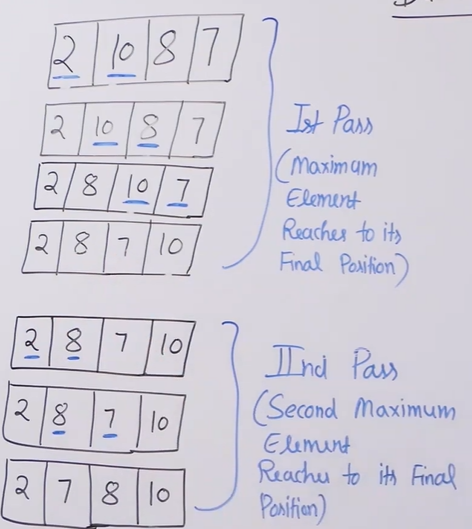 2 10 8 7
2 10 8 7
2 8 10 7
2 8 7 10
Ist Pass
(Maximum
Element
Reaches to its
Final Position)
2 8 7 10
2 8 7 10
2 7 8 10
IInd Pass
(Second Maximum
Element
Reaches to its Final
Position)